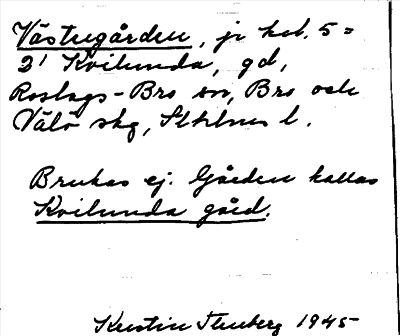 Västergården, jr hel. 5=
2¹ Kvilunda, gd,
Roslags-Bro sn, Bro och
Välö skg, Sthlms l.
Brukas ej. Gården kallas
Kvilunda gård.
Kerstin Stenberg 1945